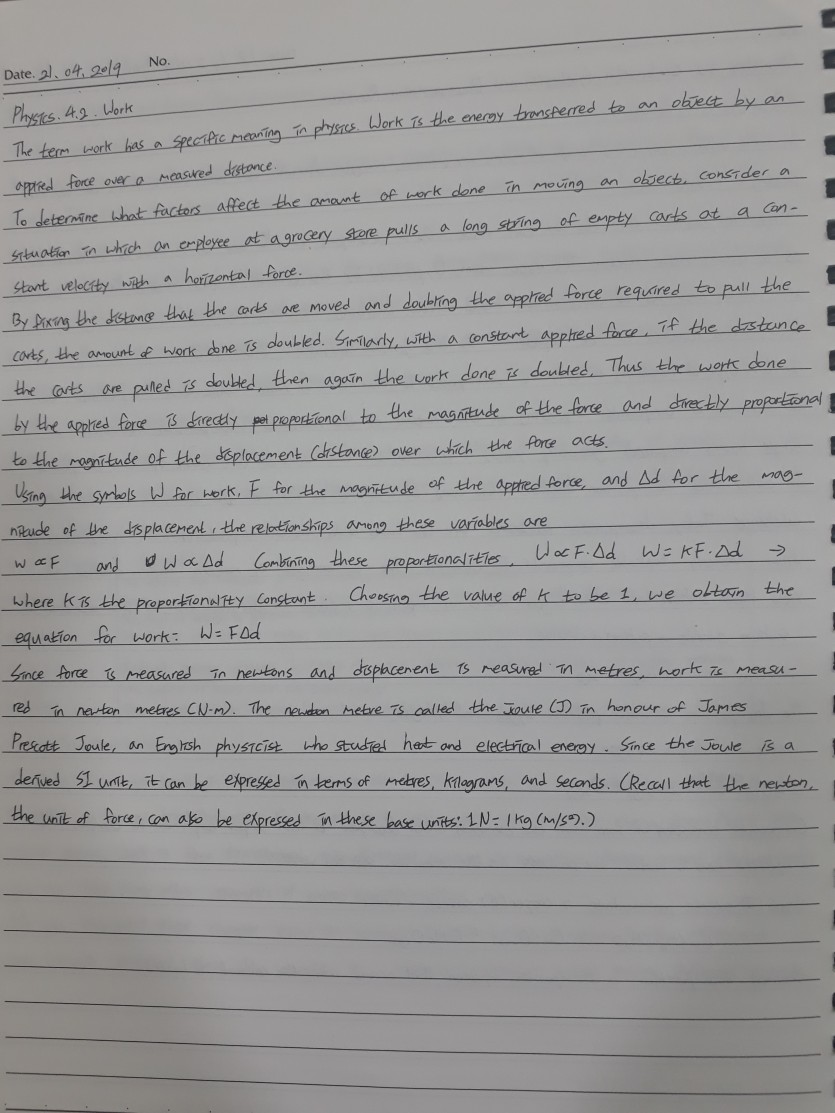 Date. 21. 04. 2019 No.
Physics. 4.2. Work
The term work has a specific meaning in physics. Work is the energy transferred to an object by an
applied force over a measured distance.
To determine what factors affect the amount of work done in moving an object, consider a
situation in which an employee at a grocery store pulls a long string of empty carts at a con-
stant velocity with a horizontal force.
By fixing the distance that the carts are moved and doubling the applied force required to pull the
carts, the amount of work done is doubled. Similarly, with a constant applied force, if the distance
the carts are pulled is doubled, then again the work done is doubled. Thus the work done
by the applied force is directly proportional to the magnitude of the force and directly proportional
to the magnitude of the displacement (distance) over which the force acts.
Using the symbols W for work, F for the magnitude of the applied force, and Δd for the mag-
nitude of the displacement, the relationships among these variables are
W ∝ F and W ∝ Δd Combining these proportionalities, W ∝ F·Δd W = kF·Δd →
where k is the proportionality constant. Choosing the value of k to be 1, we obtain the
equation for work: W = FΔd
Since force is measured in newtons and displacement is measured in metres, work is measu-
red in newton metres (N·m). The newton metre is called the Joule (J) in honour of James
Prescott Joule, an English physicist who studied heat and electrical energy. Since the Joule is a
derived SI unit, it can be expressed in terms of metres, kilograms, and seconds. (Recall that the newton,
the unit of force, can also be expressed in these base units: 1N = 1kg (m/s²).)